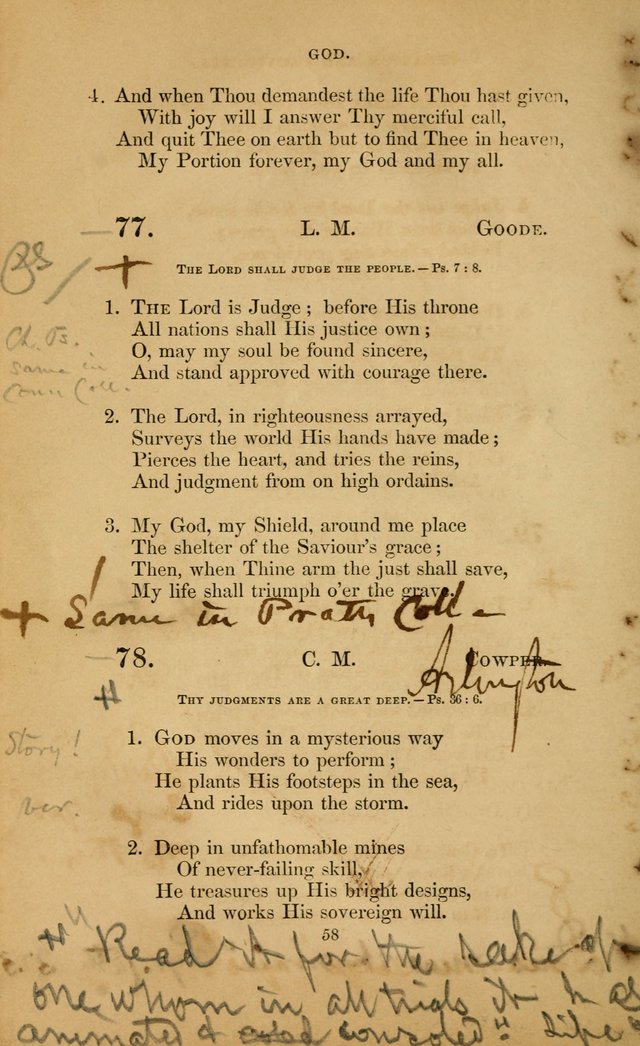 GOD.
4. And when Thou demandest the life Thou hast given,
With joy will I answer Thy merciful call,
And quit Thee on earth but to find Thee in heaven,
My Portion forever, my God and my all.
77. L. M. Goode.
+
The Lord shall judge the people.—Ps. 7 : 8.
1. The Lord is Judge ; before His throne
All nations shall His justice own ;
O, may my soul be found sincere,
And stand approved with courage there.
Ch. Ps.
same in
Conn Coll.
2. The Lord, in righteousness arrayed,
Surveys the world His hands have made ;
Pierces the heart, and tries the reins,
And judgment from on high ordains.
3. My God, my Shield, around me place
The shelter of the Saviour's grace ;
Then, when Thine arm the just shall save,
My life shall triumph o'er the grave.
+ Same in Prats Coll -
78. C. M. Cowper.
Arlington
Thy judgments are a great deep.—Ps. 36 : 6.
1. God moves in a mysterious way
His wonders to perform ;
He plants His footsteps in the sea,
And rides upon the storm.
Story !
ver.
2. Deep in unfathomable mines
Of never-failing skill,
He treasures up His bright designs,
And works His sovereign will.
58
" Read it for the sake of
one whom in all trials it has
animated & consoled" Life